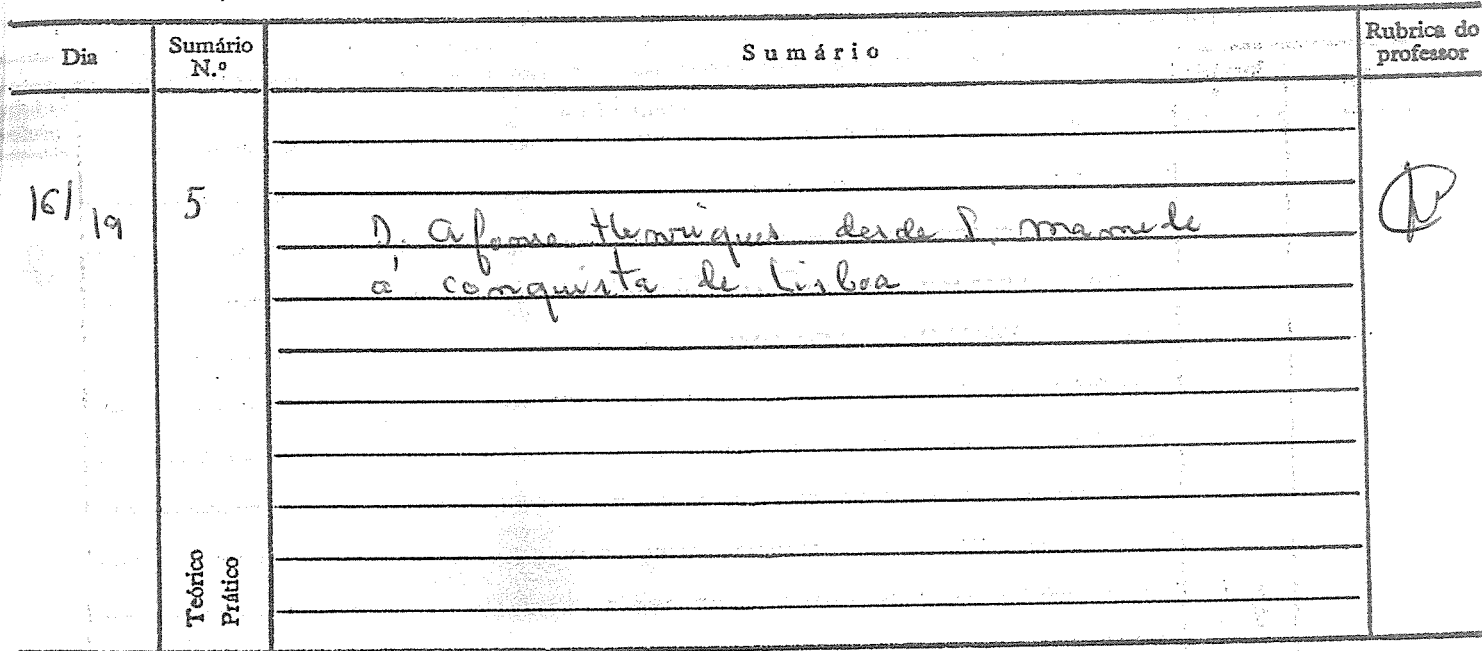 Dia
Sumário
N.º
Sumário
Rubrica do
professor
16/19
5
D. Afonso Henriques desde S. Mamede
à conquista de Lisboa
Teórico
Prático